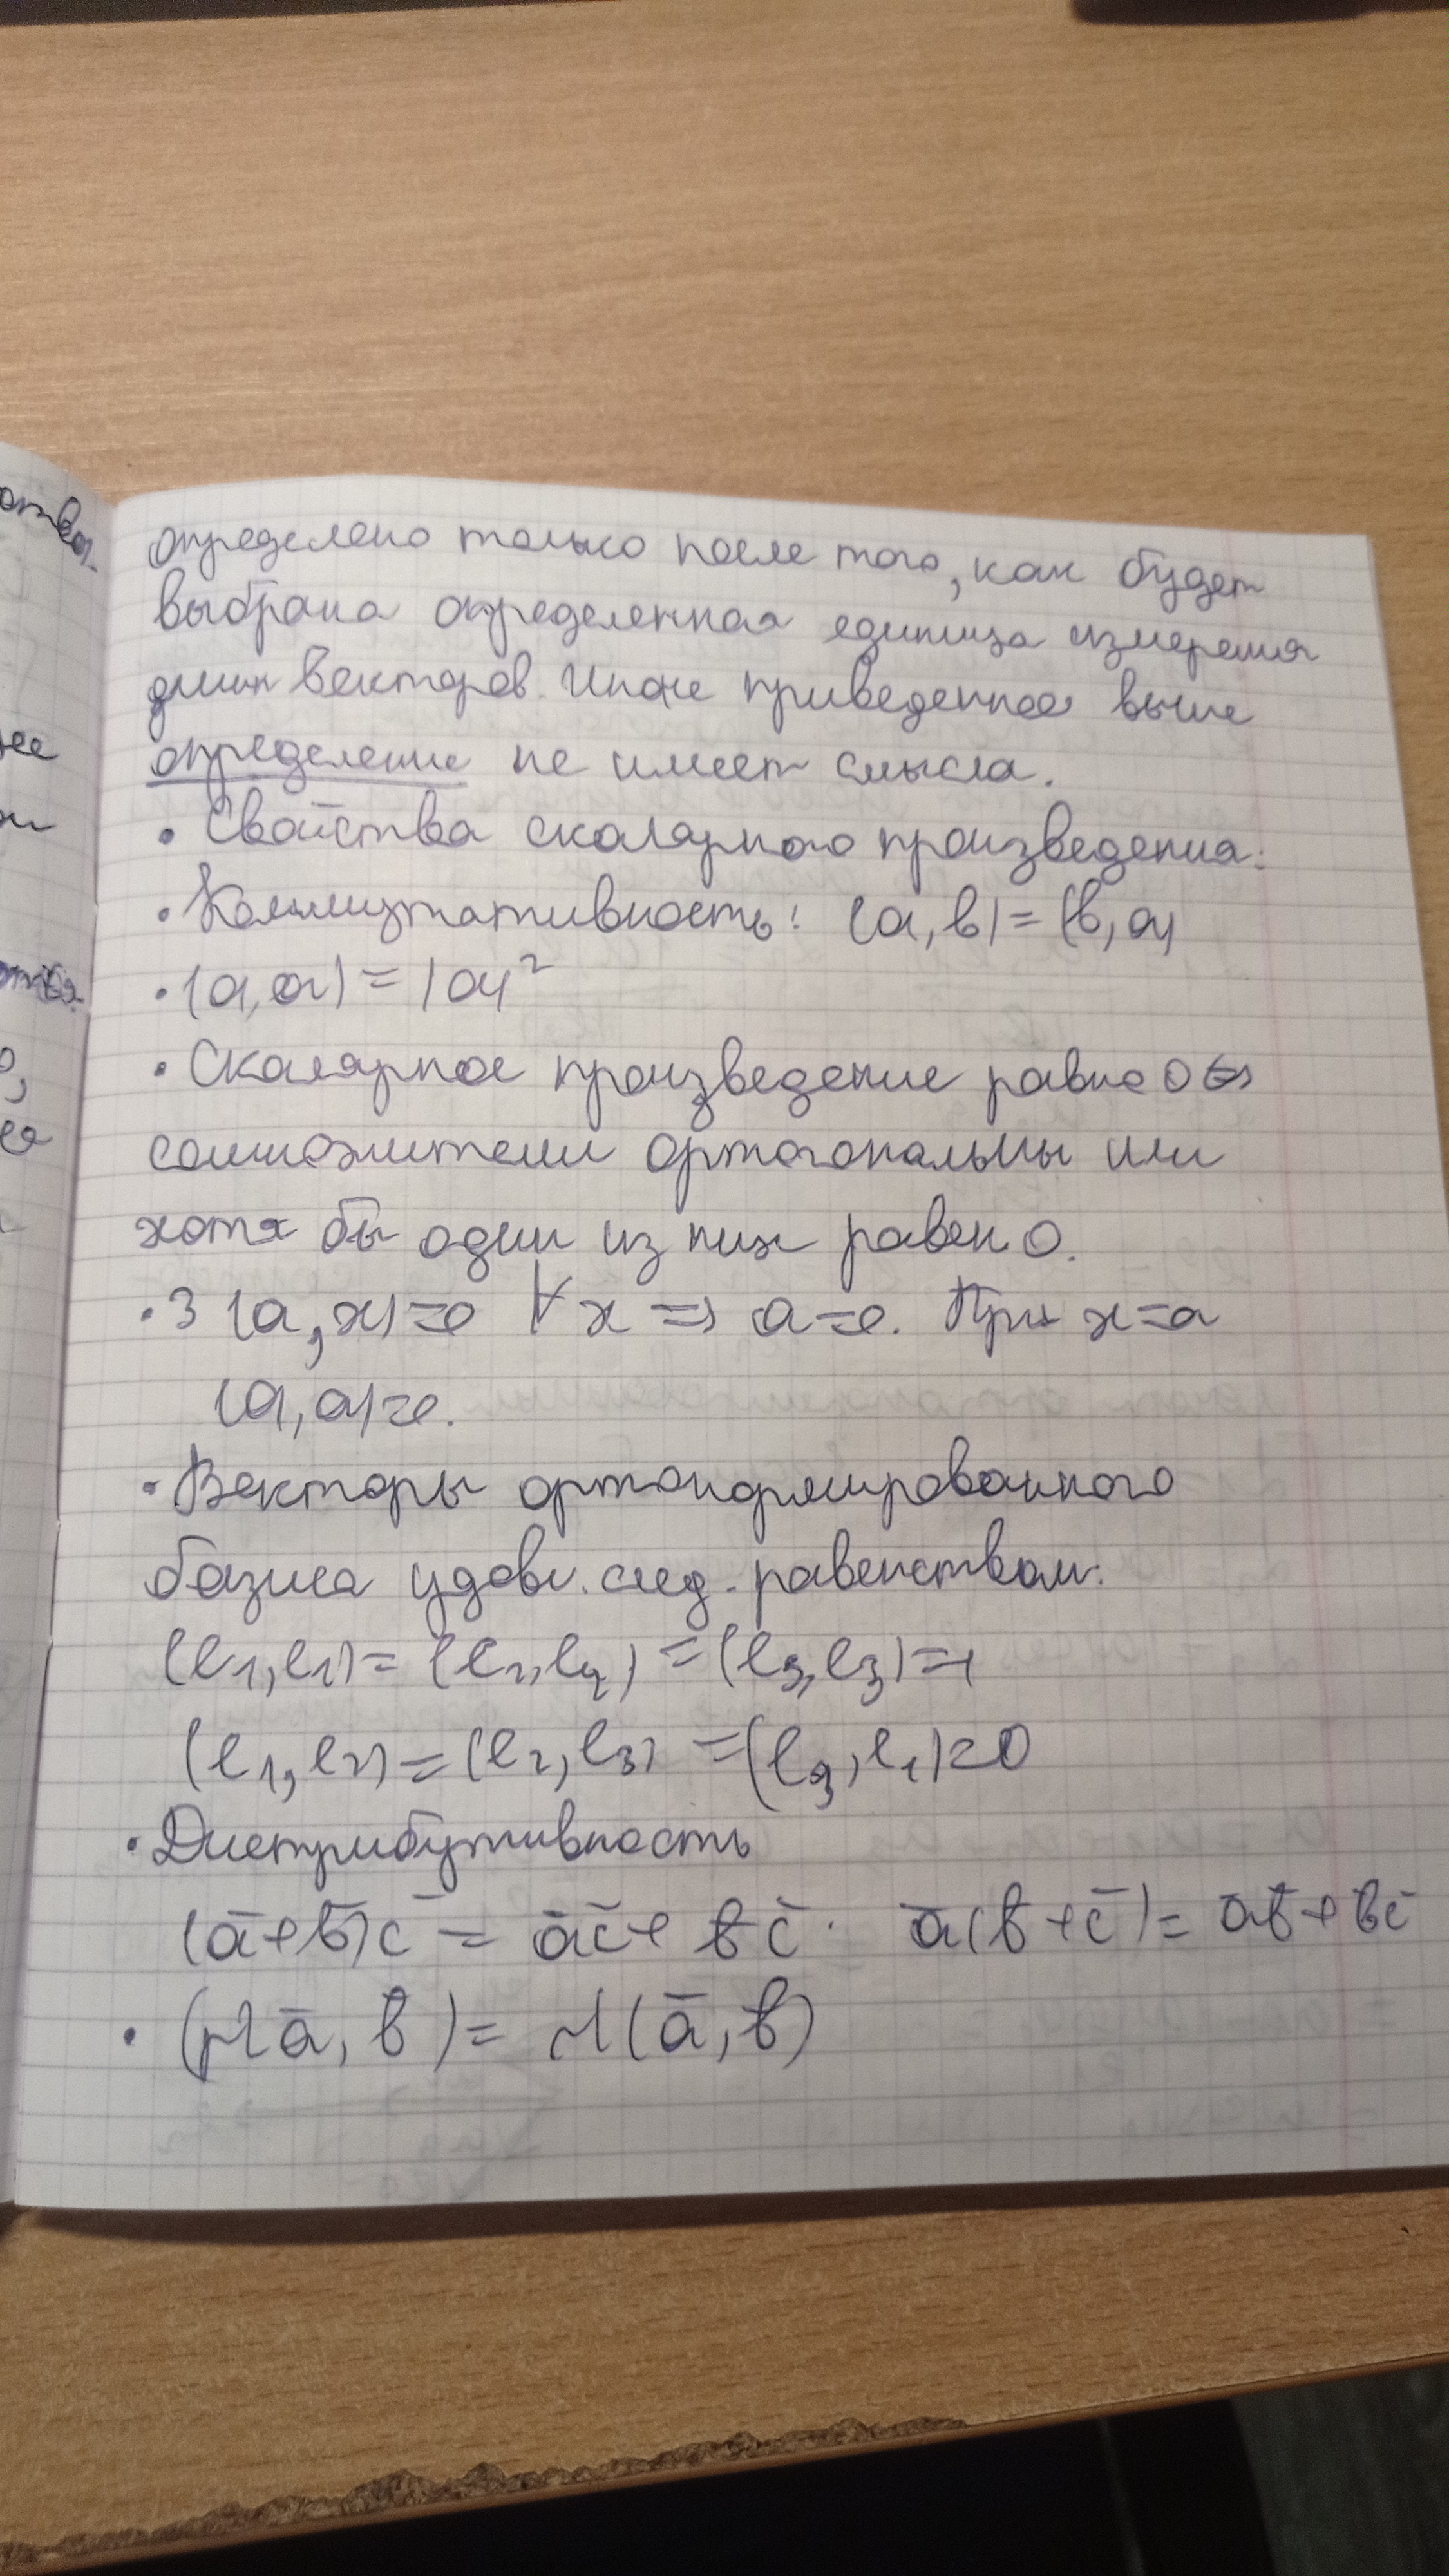 определено только после того, как будет
выбрана определенная единица измерения
длин векторов. Иначе приведенное выше
определение не имеет смысла.
• Свойства скалярного произведения:
• Коммутативность: (a, b) = (b, a)
• (a, a) = |a|²
• Скалярное произведение равно 0 <=>
сомножители ортогональны или
хотя бы один из них равен 0.
• 3 (a, x) = 0 ∀ x => a = 0. При x = a
(a, a) = 0.
• Векторы ортонормированного
базиса удовл. след. равенствам:
(e₁, e₁) = (e₂, e₂) = (e₃, e₃) = 1
(e₁, e₂) = (e₂, e₃) = (e₃, e₁) = 0
• Дистрибутивность
(ā + b̄)c̄ = āc̄ + b̄c̄. ā(b̄ + c̄) = āb̄ + b̄c̄
• ( ā, b̄) = (ā, b̄)